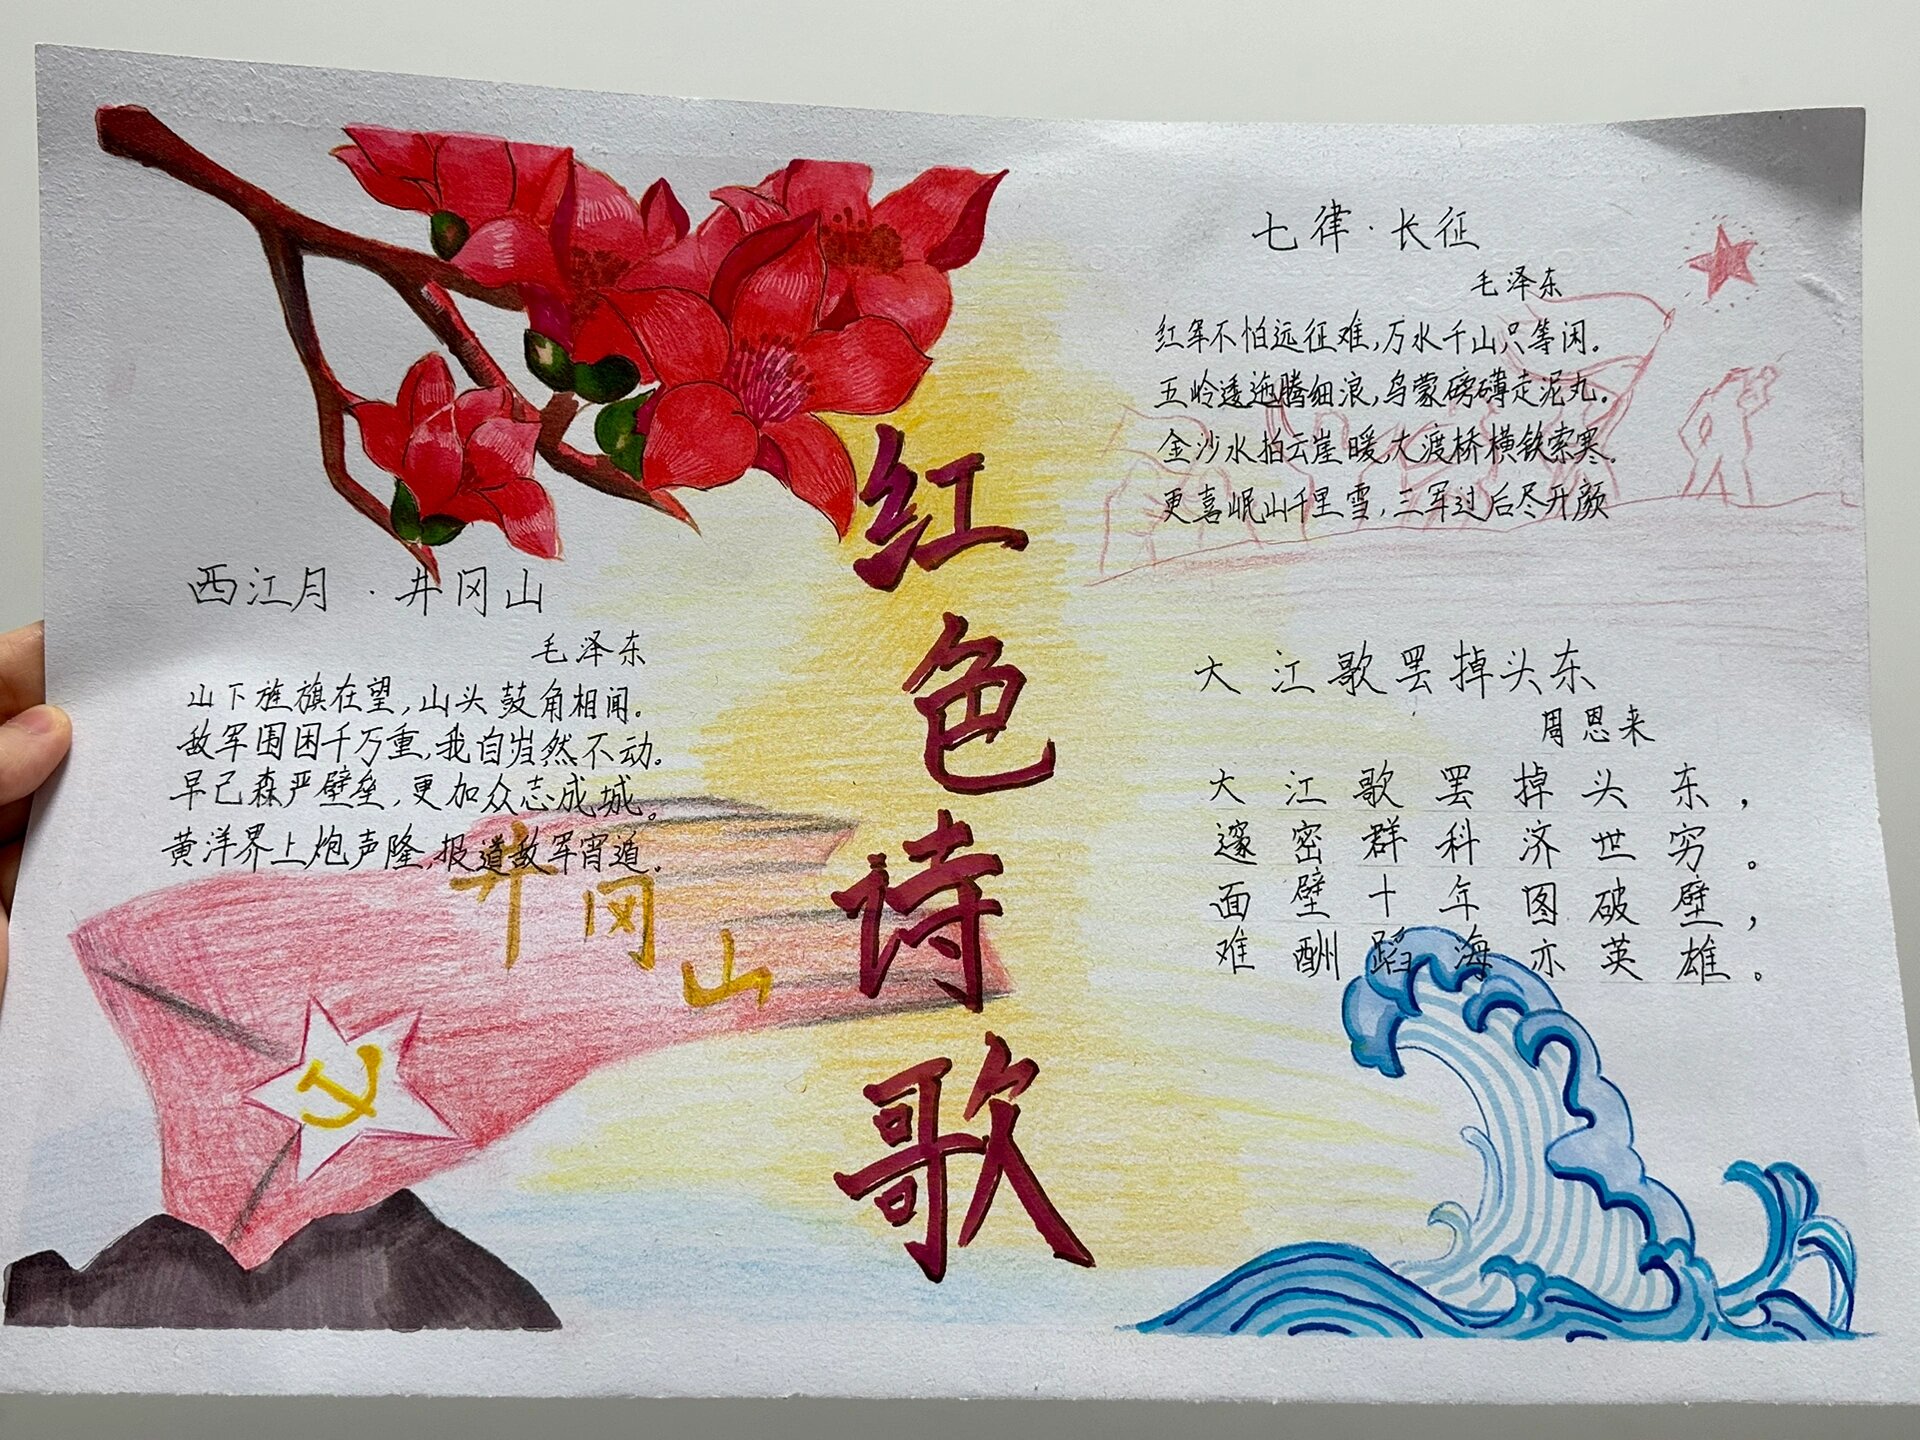 红色诗歌
西江月·井冈山
毛泽东
山下旌旗在望，山头鼓角相闻。
敌军围困千万重，我自岿然不动。
早已森严壁垒，更加众志成城。
黄洋界上炮声隆，报道敌军宵遁。
井冈山
七律·长征
毛泽东
红军不怕远征难，万水千山只等闲。
五岭逶迤腾细浪，乌蒙磅礴走泥丸。
金沙水拍云崖暖，大渡桥横铁索寒。
更喜岷山千里雪，三军过后尽开颜
大江歌罢掉头东
周恩来
大江歌罢掉头东，
邃密群科济世穷。
面壁十年图破壁，
难酬蹈海亦英雄。